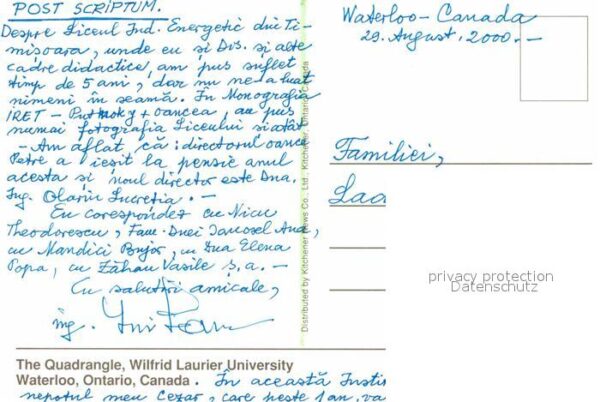 POST SCRIPTUM.
Despre Liceul Ind. Energetic din Ti-
mișoara, unde eu și Dvs. și alte
cadre didactice, am pus suflet
timp de 5 ani, dar nu ne-a luat
nimeni în seamă. În Monografia
IRET - + Oancea, au pus
numai fotografia Liceului și atât
- Am aflat că: directorul Oancea
Petre a ieșit la pensie anul
acesta și noul director este Dna.
Ing. Olariu Lucreția. -
Eu corespondez cu Nicu
Theodorescu, Fam. Dnei Iancosel Ana,
cu Mandici Bujor, cu Dna Elena
Popa, cu Zăhan Vasile ș.a. -
Cu salutări amicale,
ing.
The Quadrangle, Wilfrid Laurier University
Waterloo, Ontario, Canada. În această Insti
nepotul meu Cezar, care peste 1 an, va
Distributed by Kitchener News Co., Ltd., Kitchener, Ontario, Canada
Waterloo - Canada
29. August, 2000. -
Familiei,
privacy protection
Datenschutz